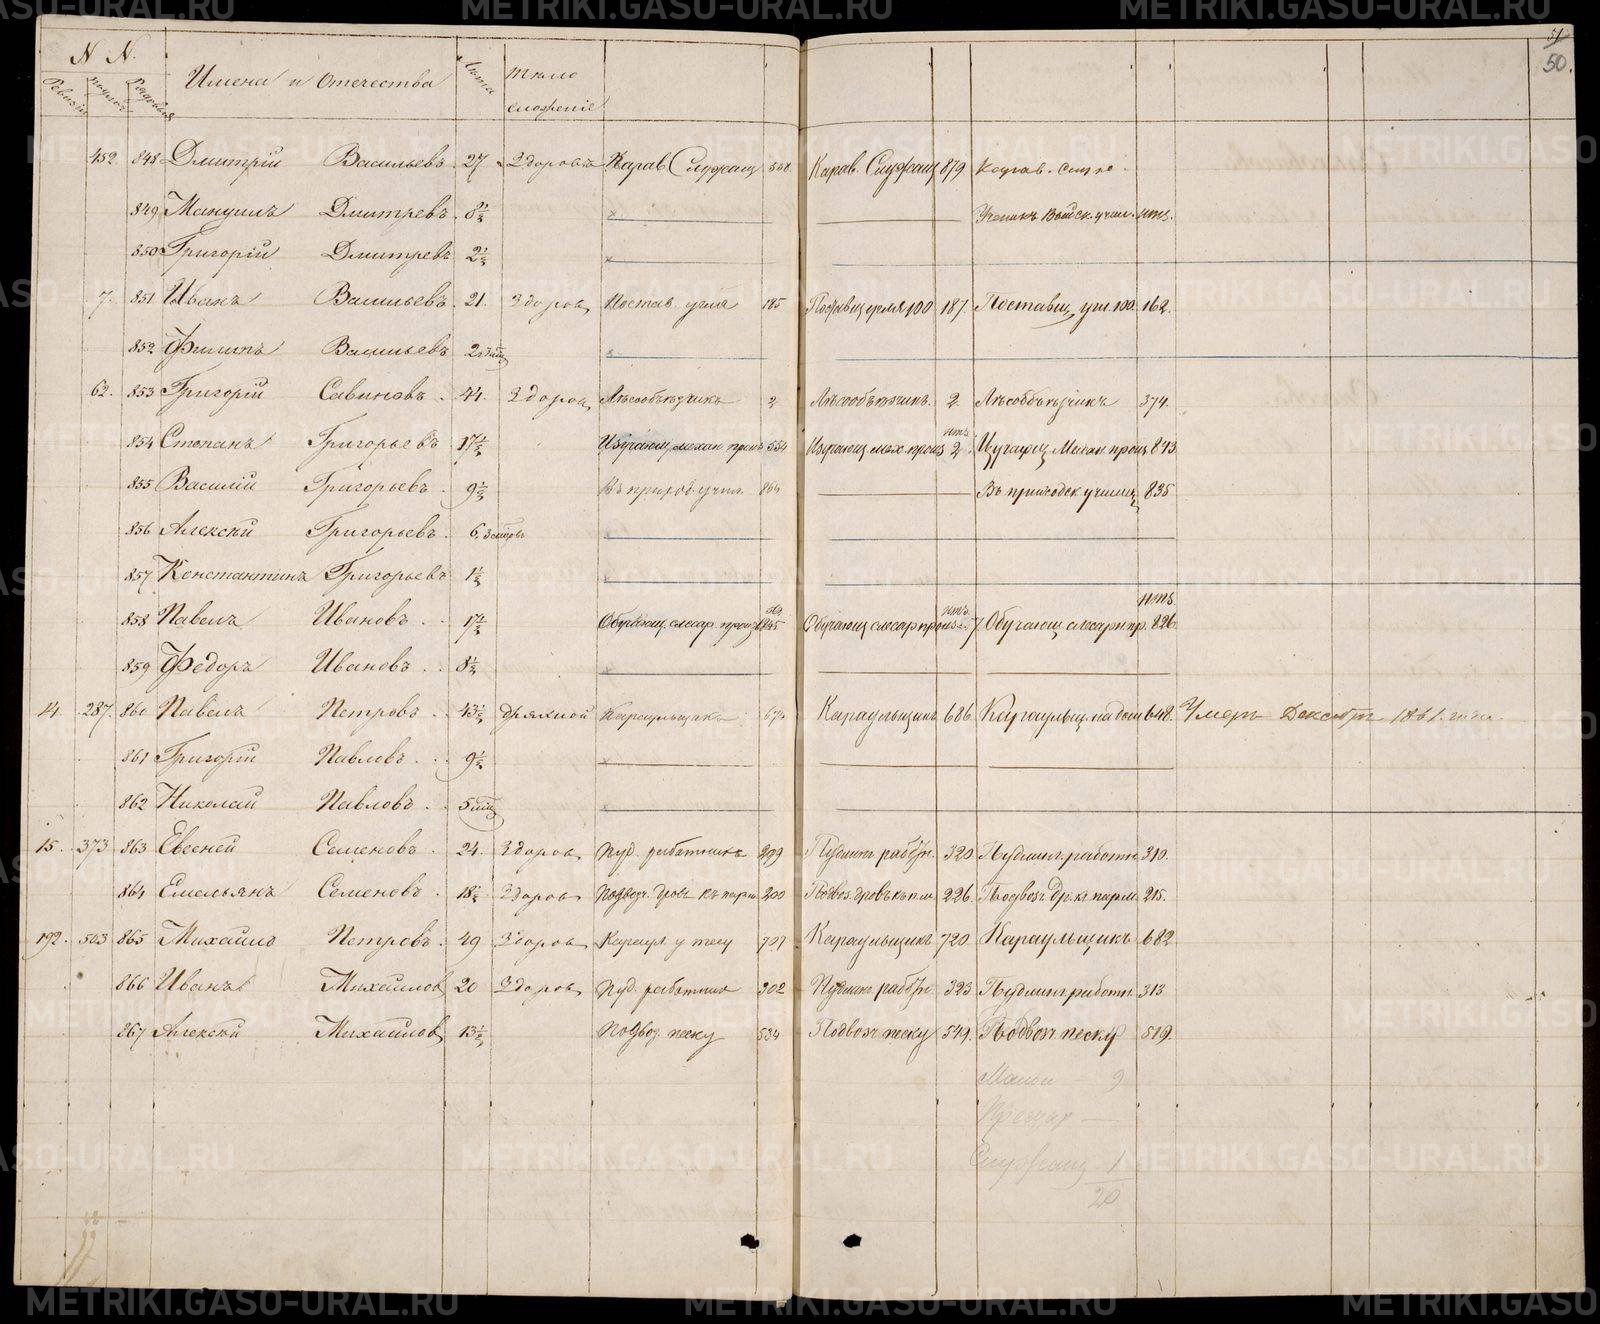 51
50.
N N.
Ревизіи
Рядовыя
Имена и Отечества
Лѣта
тѣло
сложеніе
452. 848 Дмитрій Васильевъ. 27 Здоровъ Карав. Служащ 558 Карав. Служащ 879 Карав. служ.
849 Мануилъ Дмитревъ. 8½ Ученикъ Выйск. учил. нтз.
850 Григорій Дмитревъ. 2½
7. 851 Иванъ Васильевъ. 21. Здоров Постав. угля 185 Поставщ угля 100 187. Поставщ. угл. 100. 162.
852 Филипъ Васильевъ 2
62. 853 Григорій Савиновъ. 44. Здоров Лѣсообъѣзчикъ 2 Лѣсообъѣзчикъ. 2. Лѣсообъѣзчикъ 374.
854 Степанъ Григорьевъ. 17½ Изучающ. механ. произ 554 Изучающ мех. произ нтз 2 Изучающ. Механ. произ 873
855 Василій Григорьевъ. 9½ Въ приход. учил. 864 Въ приходск. училищ 835
856 Алексѣй Григорьевъ. 6,
857 Константинъ Григорьевъ 1½
858 Павелъ Ивановъ. 17½ Обучающ. слесар. произ 845 Обучающ слесар. произ нтз. 7. Обучающ слесарн. пр. нтз. 826.
859 Федоръ Ивановъ. 8½
14. 287. 860 Павелъ Петровъ. 43½ Дряхлой Караульщикъ 674 Караульщикъ 686 Караульщ. на дом 648. Умеръ Декабря 1861. года.
861 Григорій Павловъ. 9½
862 Николай Павловъ. 5 мѣс
15. 373 863 Евсеней Семеновъ. 24. Здоров. Пуд. работникъ 299 Пудлинг. работн. 320 Пудлинг. работн. 310.
864 Емельянъ Семеновъ. 18½ Здоров. Подвоз. дровъ къ парм. 200 Подвоз. дровъ къ п.м. 226. Подвоз. др. къ парм. 215.
192. 503 865 Михайло Петровъ. 49 Здоров. Караул. у тесу 707 Караульщикъ 720 Караульщикъ 682
866 Иванъ Михайлов 20 Здоров. Пуд. работник 302 Пудлинг. работн 323 Пудлинг. работн. 313
867 Алексѣй Михайлов, 13½ Подвоз. песку 534 Подвоз. песку 549. Подвоз. песку 519.
Малол — 9
Служащ — 1
20
METRIKI.GASO-URAL.RU